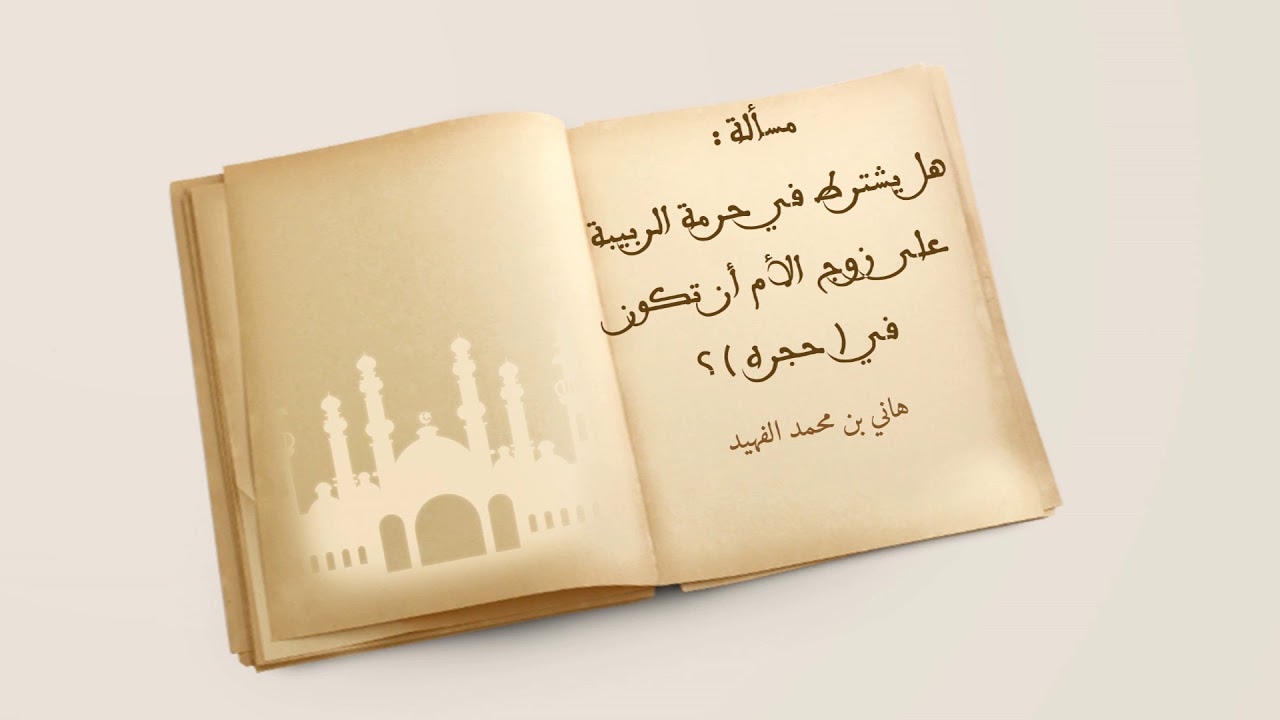 مسألة :
هل يشترط في حرمة الربيبة
على زوج الأم أن تكون
في ( حجره ) ؟
هاني بن محمد الفهيد